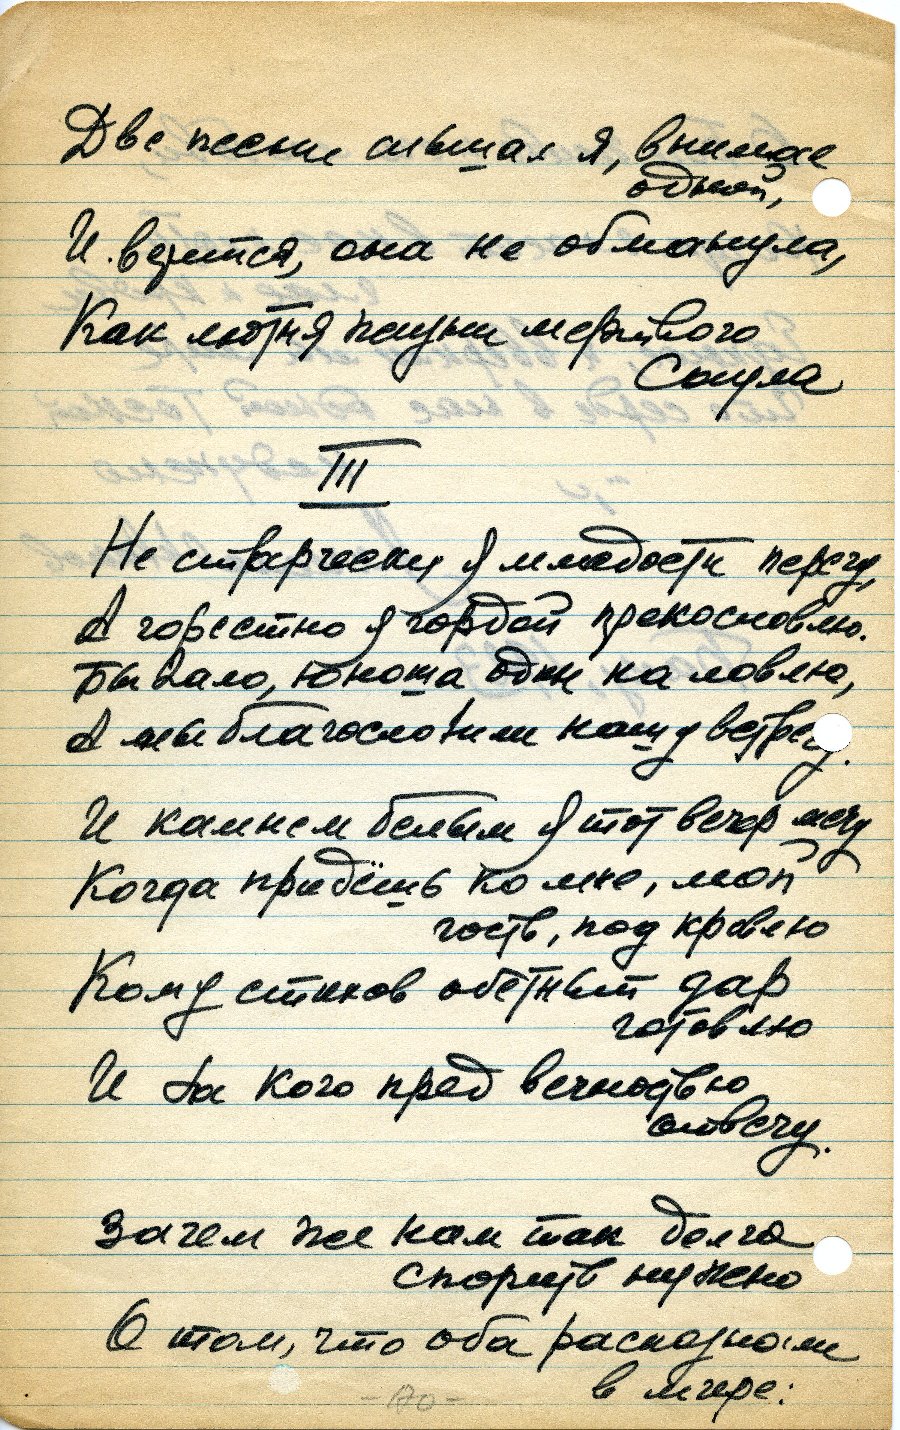 Две песни слышал я, внимая
одной,
И верится, она не обманула,
Как лютня мертвого
Саула
III
Не старчески я младости перечу,
А горестно я гордой прекословлю.
Бывало, юноша один на ловлю,
А мы благословим нашу встречу.
И камнем белым я тот вечер мечу
Когда придёшь ко мне, мой
гость, под кровлю
Кому стихов обетный дар
готовлю
И за кого пред вечностью
отвечу.
Зачем же нам так долго
спорить нужно
О том, что оба распознали
в мире:
-170-